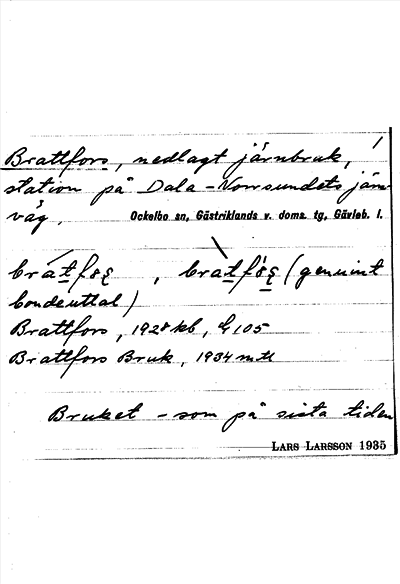 1
Brattfors, nedlagt järnbruk,
station på Dala-Norrsundets järn
väg. Ockelbo sn, Gästriklands v. doms. tg, Gävleb. l.
bratfɷs̨, bratfɷ́s̨ (genuint
bondeuttal)
Brattfors, 1928 kb, G 105
Brattfors Bruk, 1934 mtl
Bruket - som på sista tiden
LARS LARSSON 1935